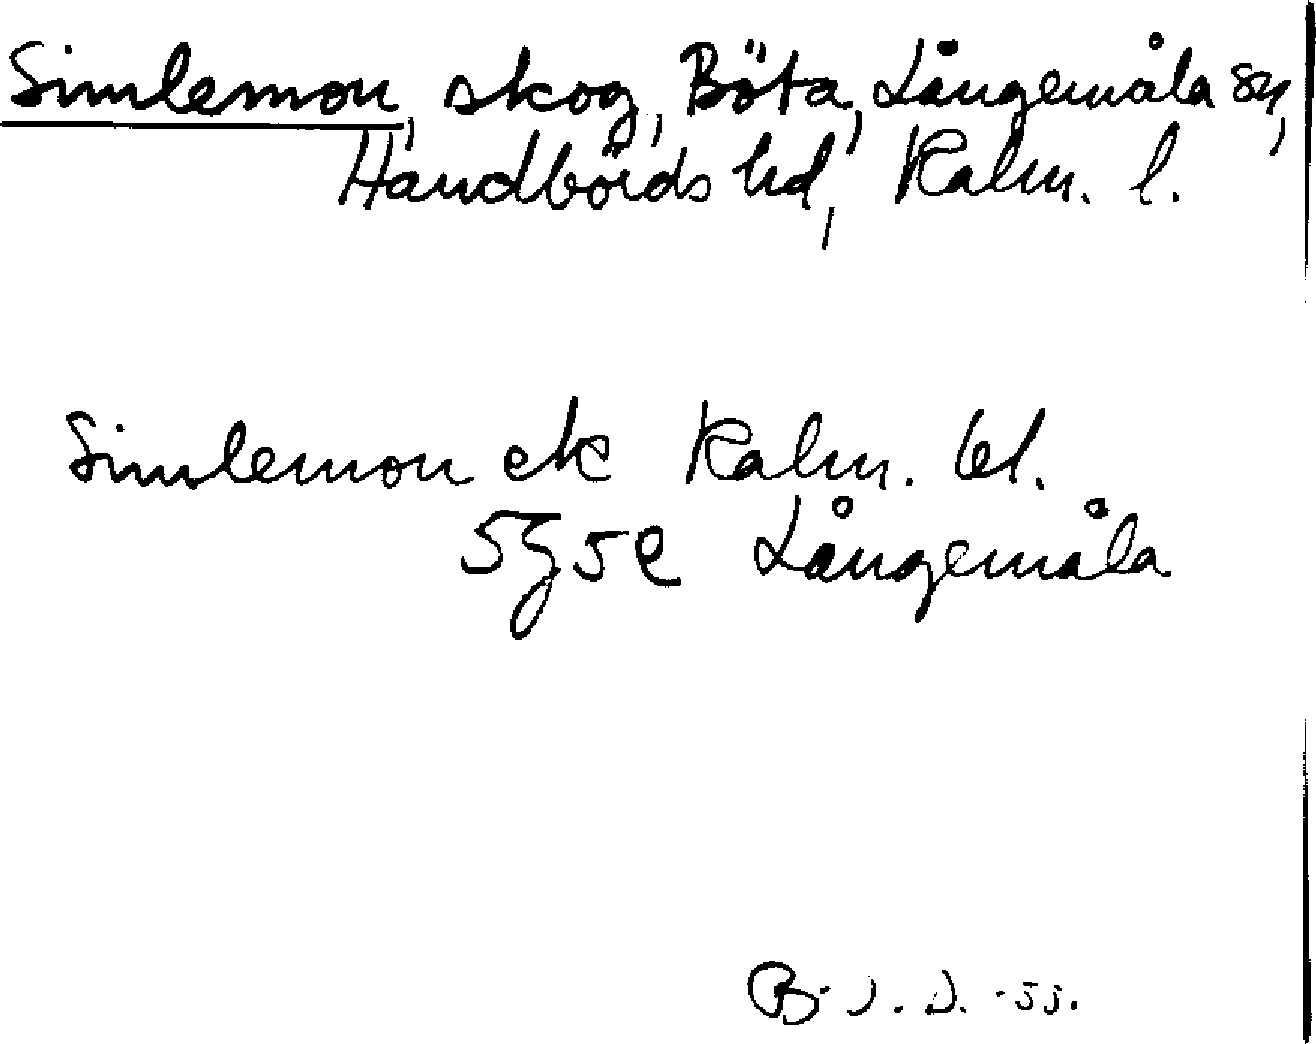 Simlemon, skog, Böta, Långemåla sn,
Handbörds hd, Kalm. l.
Simlemon ek Kalm. bl.
5g5e Långemåla